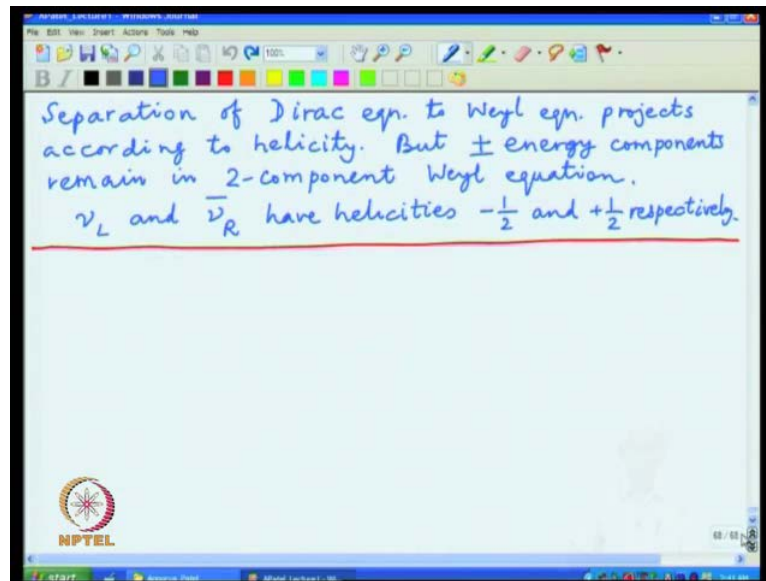 APatel_Lecture1 - Windows Journal
File Edit View Insert Actions Tools Help
100%
B I
Separation of Dirac eqn. to Weyl eqn. projects
according to helicity. But ± energy components
remain in 2-component Weyl equation.
ν_L and ν̅_R have helicities -1/2 and +1/2 respectively.
NPTEL
68 / 68
start